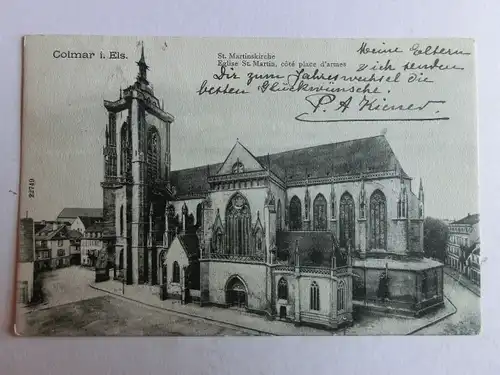 Colmar i. Els.
St. Martinskirche
Eglise St. Martin, côté place d'armes
Meine Eltern
und ich senden
Dir zum Jahreswechsel die
besten Glückwünsche.
P. A Kiener
22749